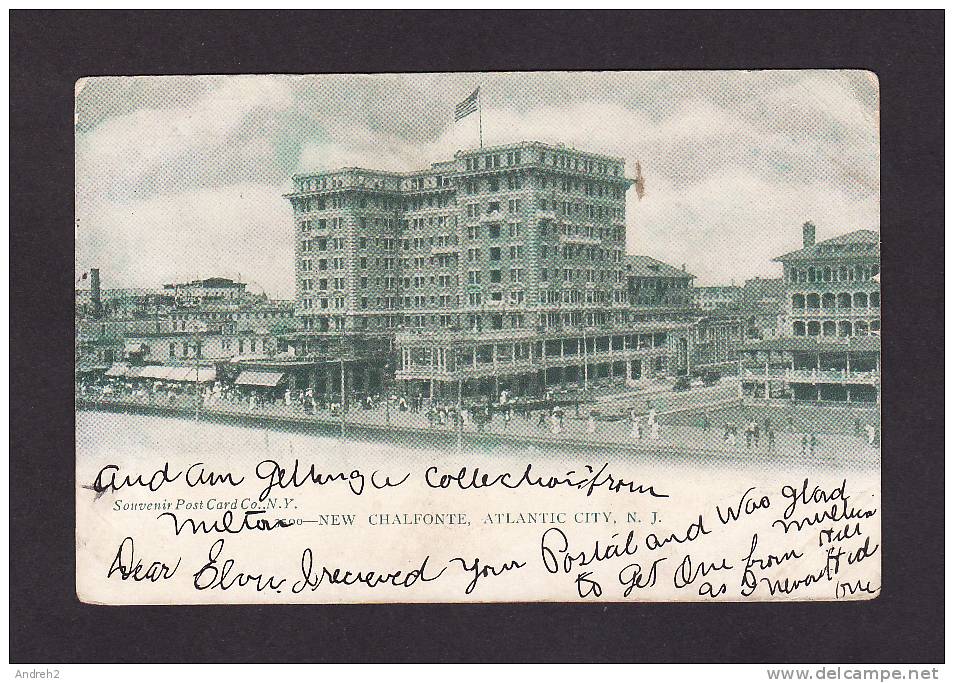 and am Getting a collection from
Souvenir Post Card Co., N.Y.
Milton
—NEW CHALFONTE, ATLANTIC CITY, N. J.
Dear I recieved your Postal and Was Glad
to Get One from
Hill
as I never Had
one
Andreh2
www.delcampe.net